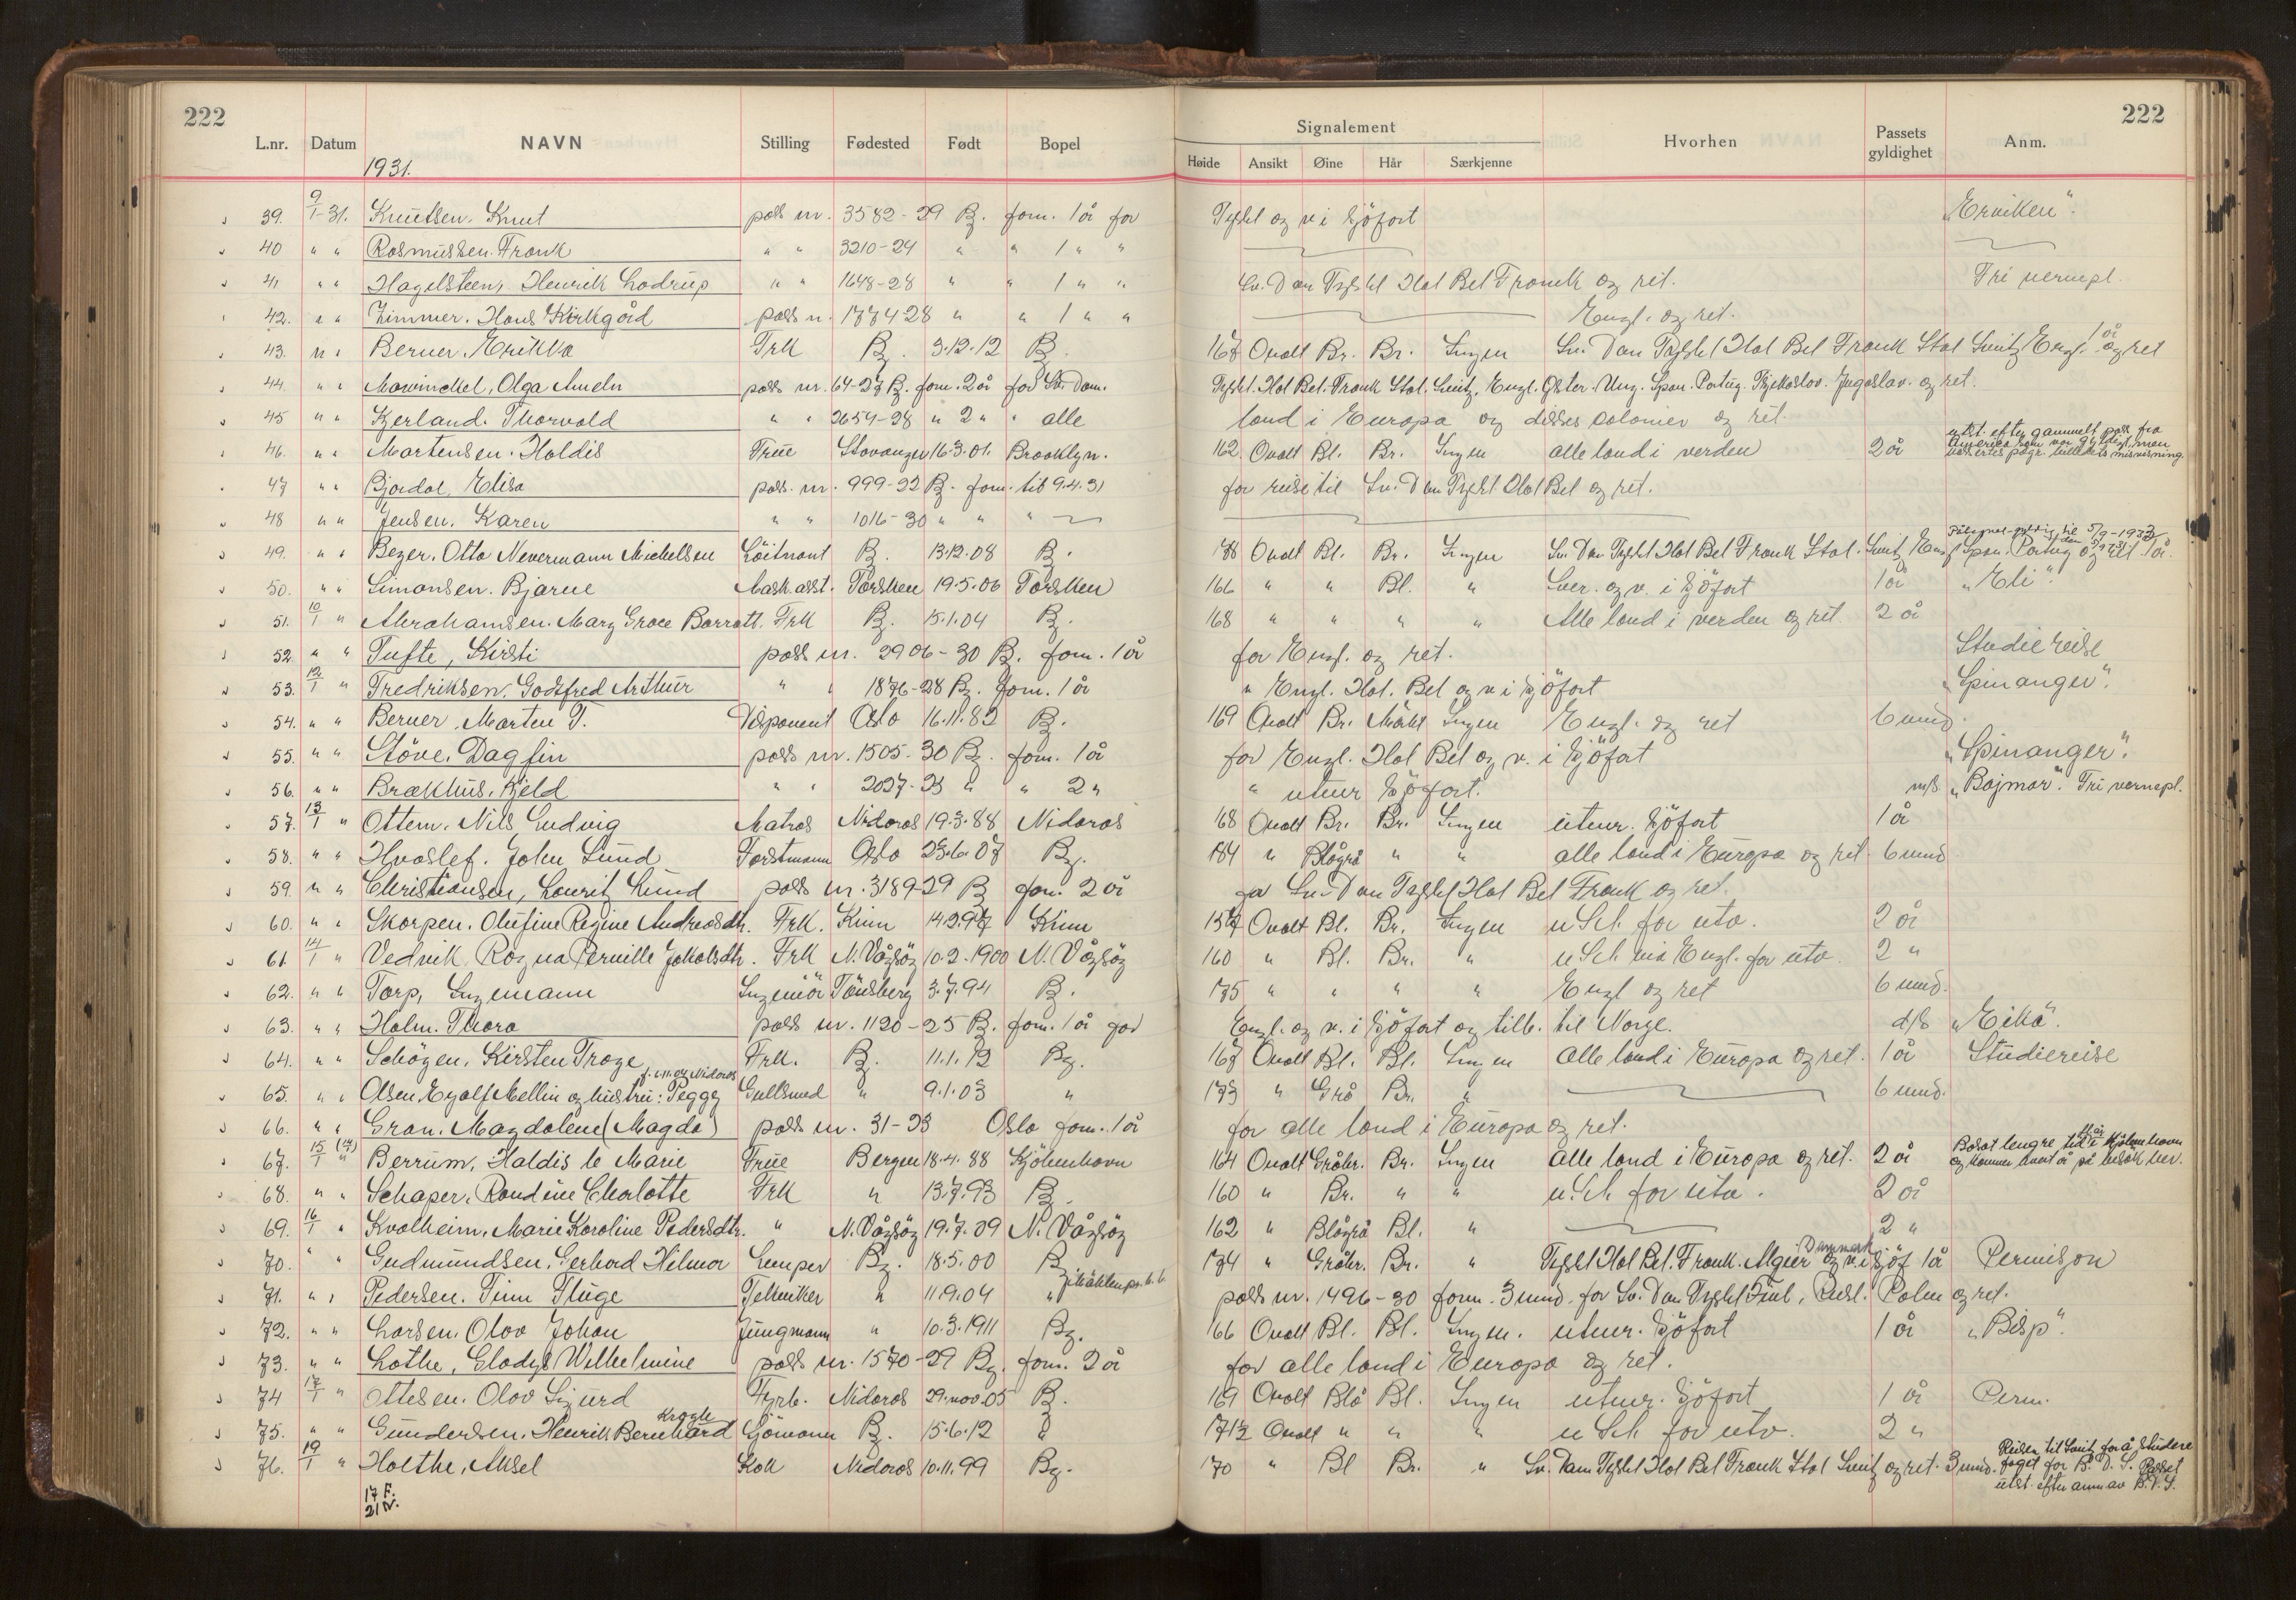 222
222
L.nr. Datum NAVN Stilling Fødested Født Bopel
Signalement
Høide Ansikt Øine Hår Særkjenne Hvorhen Passets gyldighet Anm.
1931.
39. 9/1-31. Knutsen. Knut pass nr. 3582-29 Bg. forn. 1 år for Tyskl og v i Sjöfart "Erviken".
40 " " Rasmussen. Frank " " 3210-24 " " 1 " "
41 " " Hagelsteen, Henrik Lodrup " " 1648-28 " " 1 " " Sv. Dan Tyskl Hol Bel Frank og ret. Fri vernepl.
42. " " Zimmer. Hans Kirkgård pass n. 1774-28 " " 1 " " Engl. og ret.
43. " " Berner. Erikka Frk Bg. 3.12.12 Bg. 167 Ovalt Br. Br. Ingen Sv. Dan Tyskl Hol Bel Frank Ital Sveitz Engl. og ret 1 år
44. " " Mowinckel, Olga Ameln pass nr. 64-27 Bg. forn. 2 år for Sv. Dan. Tyskl. Hol Bel. Frank Ital. Sveitz. Engl. Öster. Ung. Span. Portug. Tsjekoslov. Jugoslav. og ret.
45 " " Kjerland. Thorvald " " 2654-28 " 2 " " alle land i Europa og disses colonier og ret.
46. " " Martensen. Haldis Frue Stavanger 16.3.01. Brooklyn. 162 Ovalt Bl. Br. Ingen alle land i verden 2 år utst. efter gammelt pass fra Amerika som var gyldigt, men
47 " " Bjordal, Elisa pass. nr. 999-22 Bg. forn. til 9.4.31 for reise til Sv. Dan Tyskl Hol Bel og ret.
48 " " Jensen. Karen " " 1016-30 " " "
49. " " Beyer. Otto Nevermann Michelsen Löitnant Bg. 13.12.08 Bg. 178 Ovalt Bl. Br. Ingen Sv. Dan Tyskl Hol Bel Frank Ital. Sveitz Engl Span. Portug og ret 1 år.
50. " " Simonsen. Bjarne Mask.asst. Torsken 19.5.06 Torsken 166 " " Bl. " Sver. og v. i Sjöfart 1 år "Eli".
51. 10/1 " Abrahamsen. Mary Grace Barratt. Frk Bg. 15.1.04 Bg. 168 " " " " Alle land i verden og ret 2 år
52. " " Tufte, Kirsti pass nr. 2906-30 Bg. forn. 1 år for Engl. og ret. Studiereise
53. 12/1 " Fredriksen. Godtfred Arthur " " 1876-28 Bg. forn. 1 år " Engl. Hol. Bel og v i Sjöfart "Spinanger".
54. " " Berner. Morten T. Disponent Oslo 16.11.82 Bg. 169 Ovalt Br. Mörkt Ingen Engl. og ret 6 mnd.
55. " " Stöve. Dagfin pass nr. 1505-30 Bg. forn. 1 år for Engl. Hol Bel og v. i Sjöfart "Spinanger".
56. " " Brækhus. Kjeld " " 2027-23 " " 2 " " utenr Sjöfart. m/s "Bajmar". Fri vernepl.
57. 13/1 " Ottem. Nils Ludvig Matros Nidaros 19.3.88 Nidaros 168 Ovalt Br. Br. Ingen utenr. Sjöfart 1 år
58. " " Hvoslef. John Lund Forstmann Oslo 23.6.07 Bg. 184 " Blågrå " " alle land i Europa og ret. 6 mnd
59. " " Christiansen, Lauritz Lund pass nr. 3189-29 Bg forn. 2 år for Sv. Dan Tyskl Hol Bel Frank og ret.
60. " " Skorpen. Olufine Regine Andreasdtr. Frk. Kinn 14.2.97 Kinn 157 Ovalt Bl. Br. Ingen u Sch for utv. 2 år
61. 14/1 " Vedvik. Ragna Pernille Jakobsdtr. Frk N. Vågsöy 10.2.1900 N. Vågsöy 160 " Bl. Br. " u Sch via Engl. for utv. 2 "
62. " " Torp, Ingemann Ingeniör Tönsberg 3.7.94 Bg. 175 " " " " Engl og ret 6 mnd.
63. " " Holm. Thora pass nr. 1120-25 Bg. forn. 1 år for Engl. og v. i Sjöfart og tilb. til Norge. d/s "Eika".
64. " " Schöyen. Kirsten Troye Frk. Bg. 11.1.12 Bg. 167 Ovalt Bl. Bl. Ingen Alle land i Europa og ret. 1 år Studiereise
65. " " Olsen. Eyolf Mellin og hustru: Peggy Gullsmed " 9.1.03 " 173 " Grå Br. " 6 mnd.
66. " " Gran. Magdalene (Magda) pass nr. 31-23 Oslo forn. 1 år for alle land i Europa og ret.
67. 15/1 (14) " Berrum, Haldis le Marie Frue Bergen 18.4.88 Kjöbenhavn 164 Ovalt Gråbr. Br. Ingen Alle land i Europa og ret. 2 år Bosat lengre tid i Kjöbenhavn og kommer hvert år på besök her.
68. " " Schaper, Randine Charlotte Frk " 13.7.93 Bg. 160 " Br. " " u Sch for utv. 2 år
69. 16/1 " Kvalheim, Marie Karoline Pedersdtr. " N. Vågsöy 19.7.09 N. Vågsöy 162 " Blågrå Bl. " 2 "
70. " " Gudmundsen. Gerhard Hilmar Lemper Bg. 18.5.00 Bg 174 " Gråbr. Br. " Tyskl Hol Bel. Frank. Algier Danmark og v. i Sjöf 1 år Permisjon
71. " " Pedersen. Finn Fluge Tekniker " 11.9.04 " pass nr. 1496-30 forn. 3 mnd. for Sv. Dan Tyskl Finl, Rusl. Polen og ret.
72. " " Larsen. Olav Johan Jungmann " 10.3.1911 Bg. 166 Ovalt Bl. Bl. Ingen. utenr. Sjöfart 1 år "Bisp".
73. " " Lothe, Gladys Wilhelmine pass nr. 1570-29 Bg. forn. 2 år for alle land i Europa og ret.
74 17/1 " Ottesen. Olav Sigurd Fyrb. Nidaros 29.nov.05 Bg. 169 Ovalt Blå Bl. Ingen utenr. Sjöfart 1 år Perm.
75. " " Gundersen. Henrik Bernhard Krogh Sjömann Bg. 15.6.12 " 171½ Ovalt " " " u Sch for utv. 2 "
76. 19/1 " Holthe, Aksel Kok Nidaros 10.11.99 Bg. 170 " Bl Br. " Sv. Dan Tyskl Hol Bel Frank Ital Sveitz og ret. 3 mnd. Reisen til Sveitz for å studere faget for B.D.S. Passet utst. efter anm av B.D.S.
17 F.
21 N.